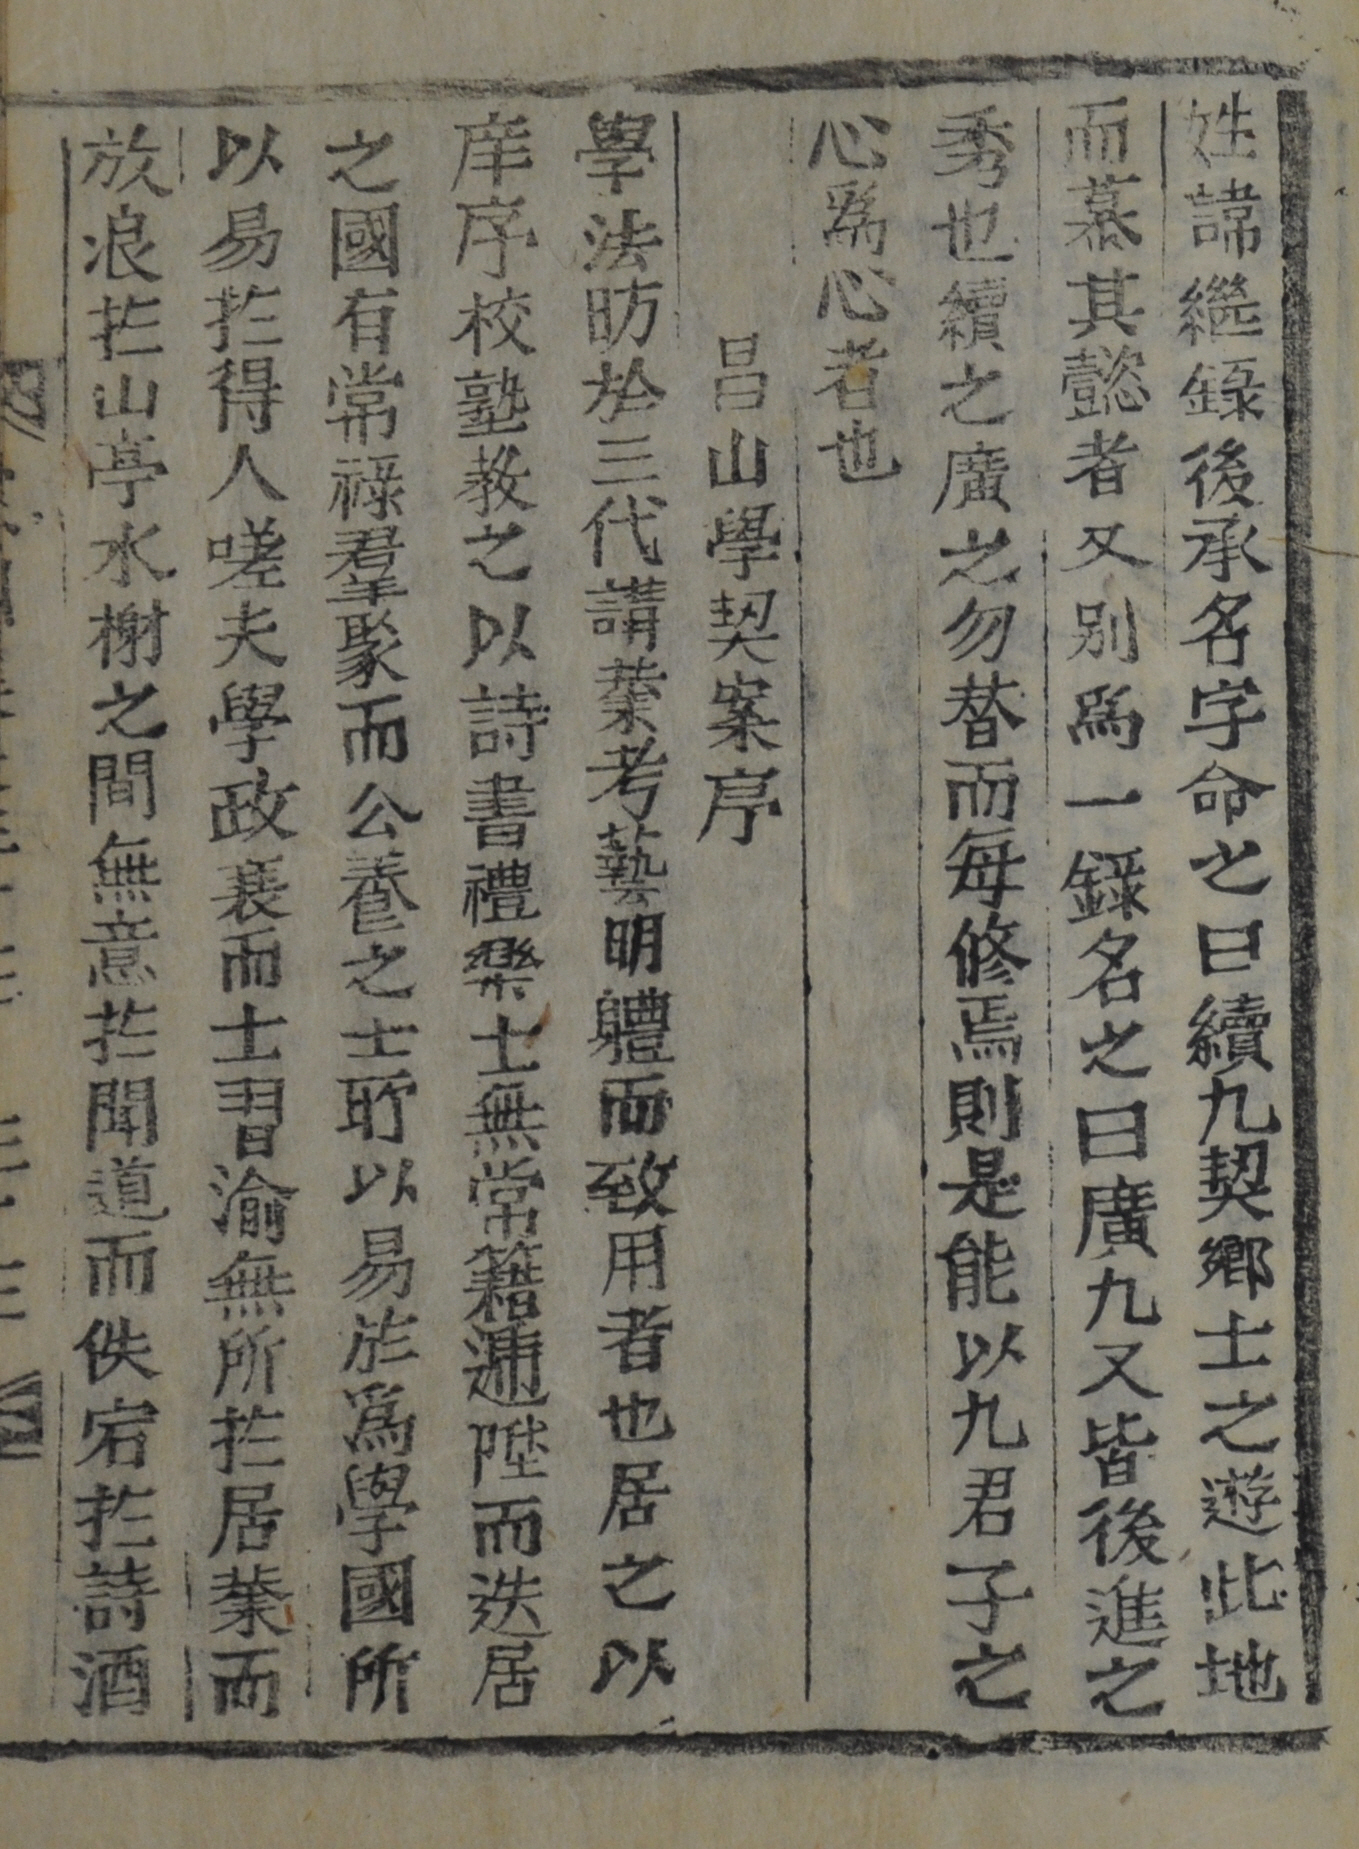 姓諱繼錄後承名字命之曰續九契鄉士之遊此地
而慕其懿者又別爲一錄名之曰廣九又皆後進之
秀也續之廣之勿替而每修焉則是能以九君子之
心爲心者也
昌山學契案序
學法昉於三代講業考藝明軆而致用者也居之以
庠序校塾敎之以詩書禮樂士無常籍遞陞而迭居
之國有常祿羣聚而公養之士所以易於爲學國所
以易於得人嗟夫學政衰而士習渝無所於居業而
放浪於山亭水榭之間無意於聞道而佚宕於詩酒